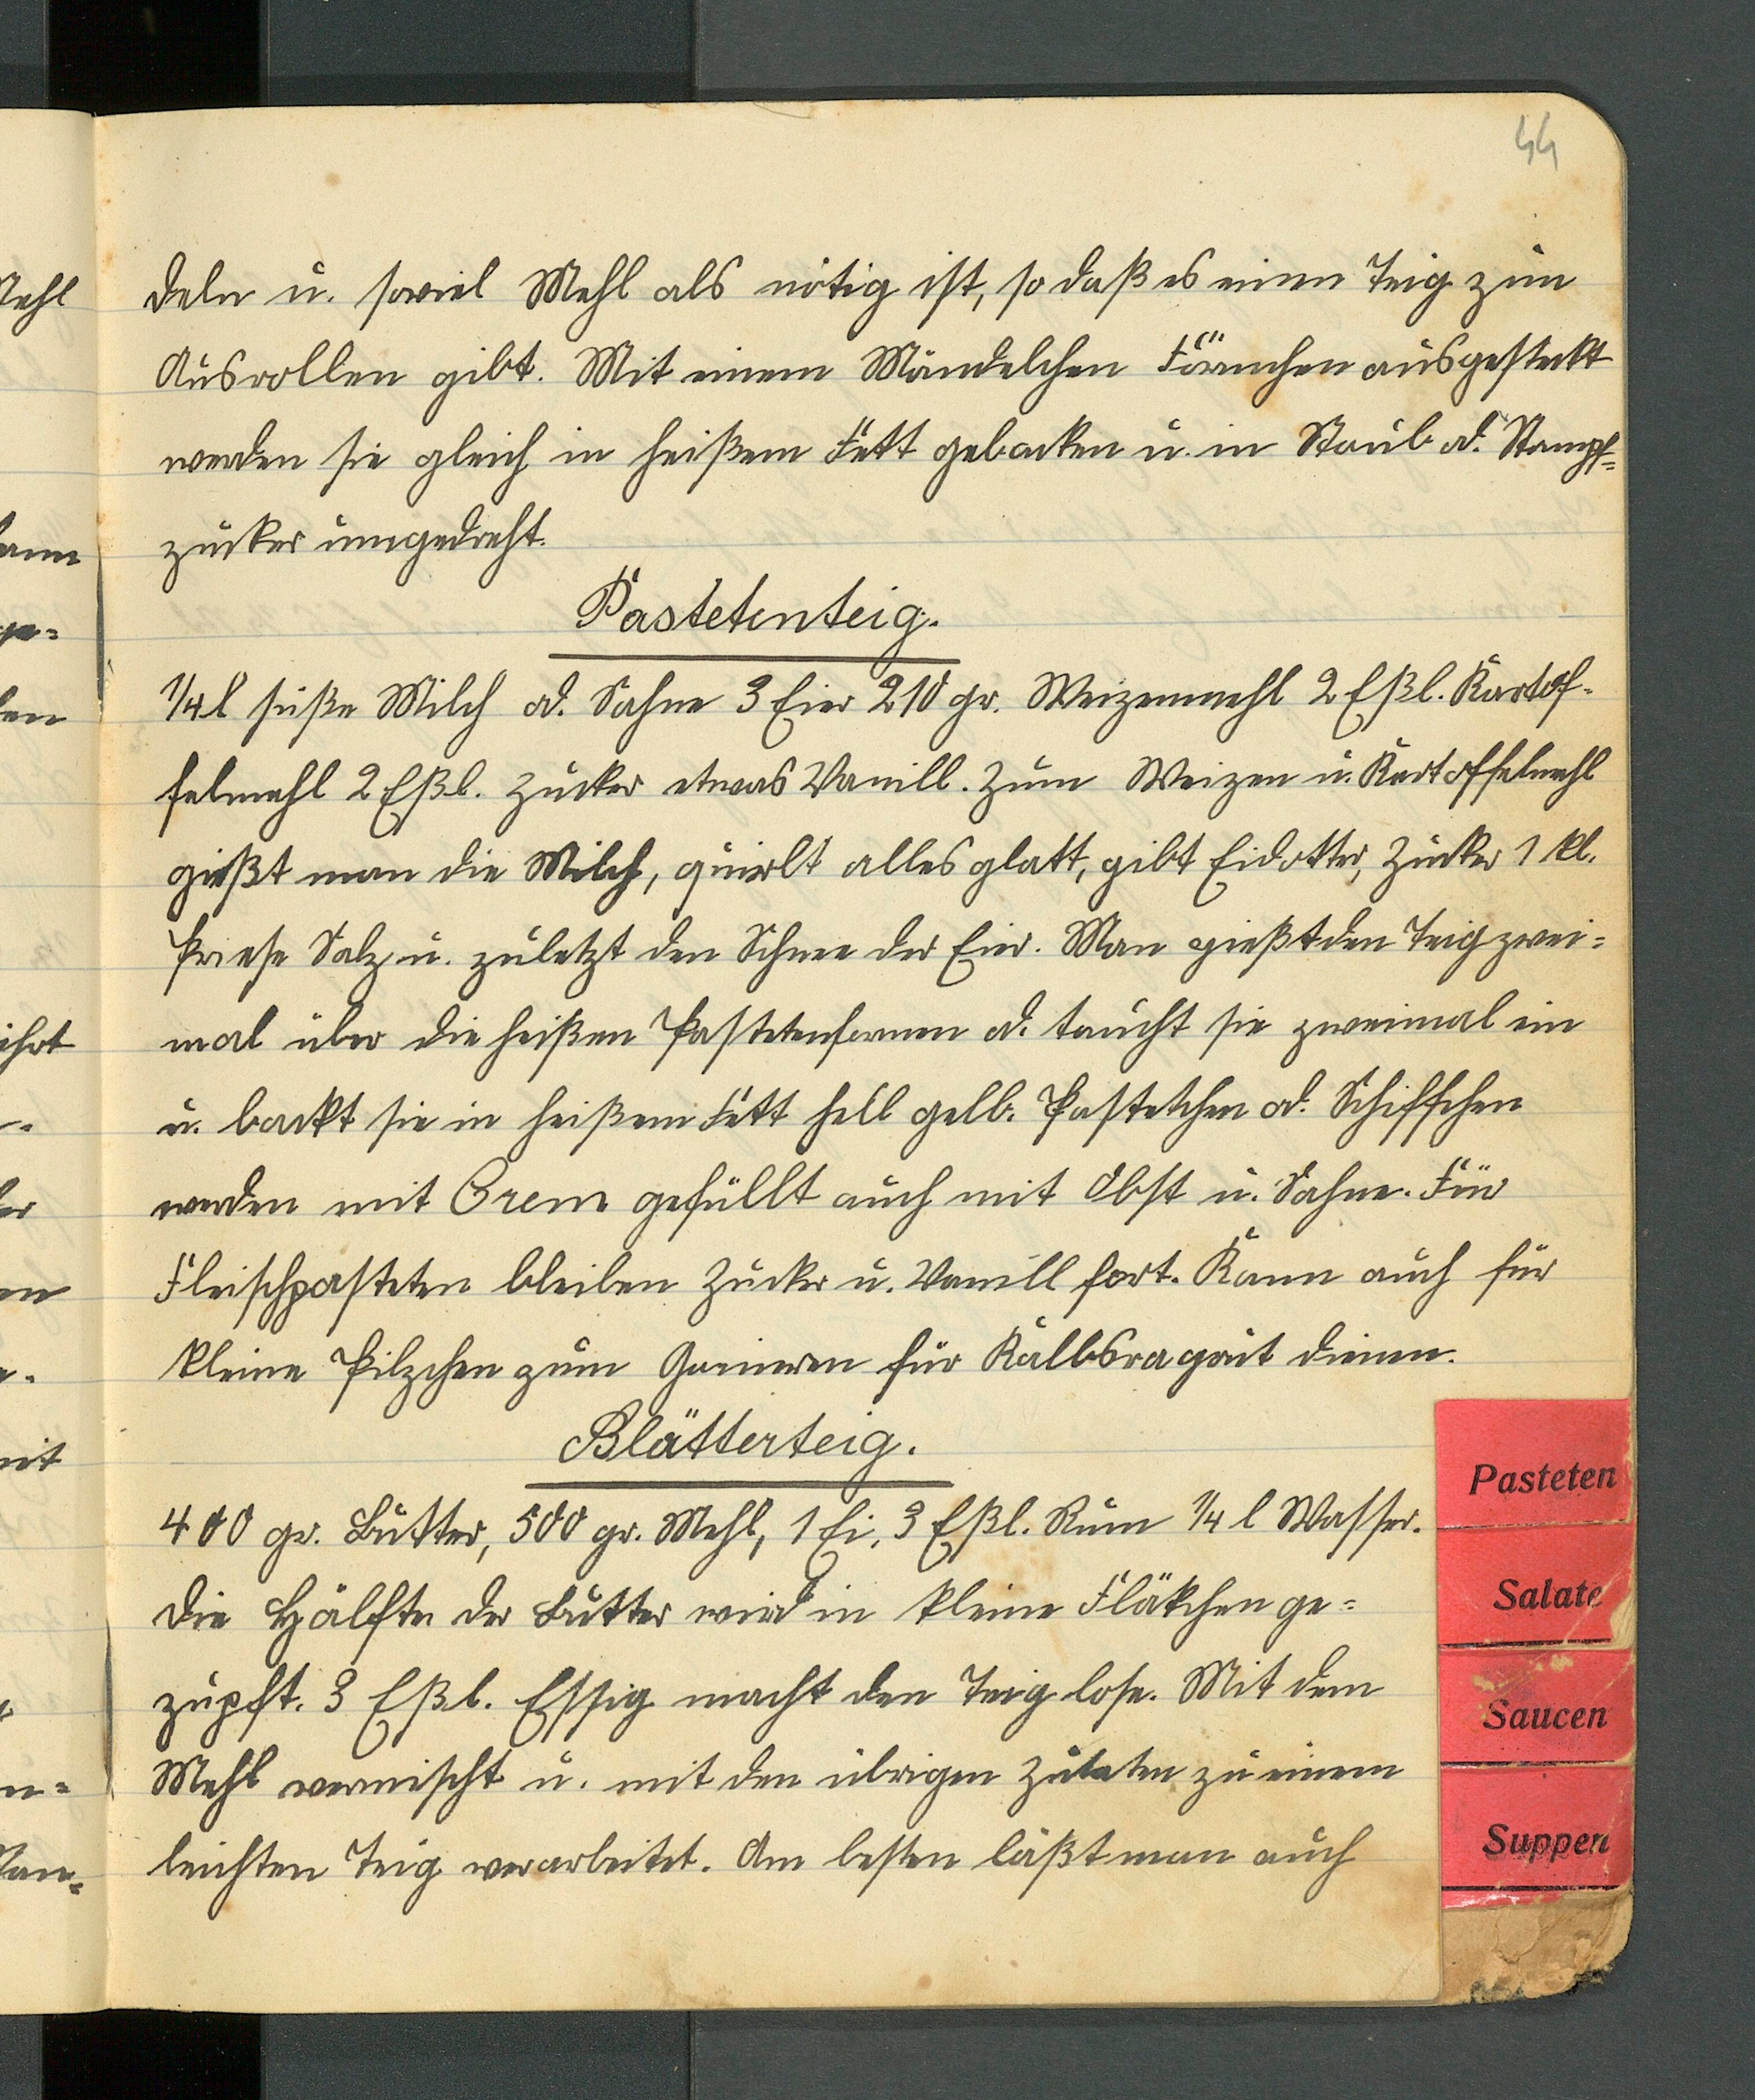 44
deln u. soviel Mehl als nötig ist, so daß es einen Teig zum
Ausrollen gibt. Mit einem Mandelchen Förmchen ausgestekt
werden sie gleich in heißem Fett gebacken u. in Staub od. Stampf=
zucker umgedreht.
Pastetenteig.
1/4 l süße Milch od. Sahne 3 Eier 210 gr. Weizenmehl 2 Eßl. Kartof-
felmehl 2 Eßl. Zucker etwas Vanill. Zum Weizen u. Kartoffelmehl
gießt man die Milch, quirlt alles glatt, gibt Eidotter, Zucker 1 kl.
Priese Salz u. zuletzt den Schnee der Eier. Man gießt den Teig zwei=
mal über die heißen Pastetenformen od. taucht sie zweimal ein
u. backt sie in heißem Fett hell gelb. Pastetchen od. Schiffchen
werden mit Crem gefüllt auch mit Obst u. Sahne. Für
Fleischpasteten bleiben Zucker u. Vanill fort. Kann auch für
kleine Pilzchen zum Garnieren für Kalbsragout dienen.
Blätterteig.
400 gr. Butter, 500 gr. Mehl, 1 Ei, 3 Eßl. Rum 1/4 l Wasser.
Die Hälfte der Butter wird in kleine Fläkchen ge=
zupft. 3 Eßl. Essig macht den Teig lose. Mit dem
Mehl vermischt u. mit den übrigen Zutaten zu einem
leichten Teig verarbeitet. Am besten läßt man auch
Pasteten
Salate
Saucen
Suppen